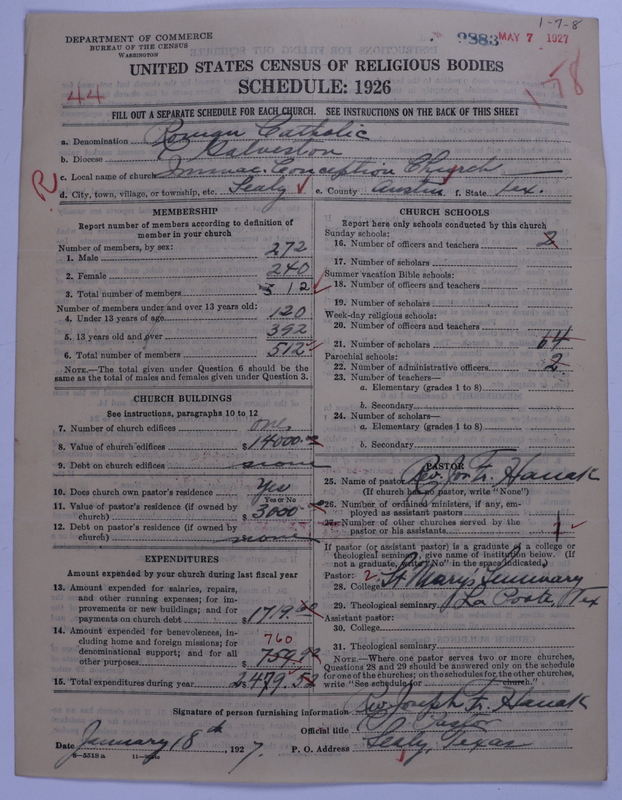 1-7-8
DEPARTMENT OF COMMERCE
BUREAU OF THE CENSUS
WASHINGTON
9883 MAY 7 1927
UNITED STATES CENSUS OF RELIGIOUS BODIES
SCHEDULE: 1926
44
178
FILL OUT A SEPARATE SCHEDULE FOR EACH CHURCH. SEE INSTRUCTIONS ON THE BACK OF THIS SHEET
a. Denomination Roman Catholic
b. Diocese Galveston
c. Local name of church Immac. Conception Church
R
d. City, town, village, or township, etc. Sealy e. County Austin f. State Tex.
MEMBERSHIP
Report number of members according to definition of member in your church
Number of members, by sex:
1. Male 272
2. Female 240
3. Total number of members 512
Number of members under and over 13 years old:
4. Under 13 years of age 120
5. 13 years old and over 392
6. Total number of members 512
NOTE.—The total given under Question 6 should be the
same as the total of males and females given under Question 3.
CHURCH BUILDINGS
See instructions, paragraphs 10 to 12
7. Number of church edifices one
8. Value of church edifices $14000.
9. Debt on church edifices none
10. Does church own pastor's residence Yes
Yes or No
11. Value of pastor's residence (if owned by
church) $3000
12. Debt on pastor's residence (if owned by
church) none
EXPENDITURES
Amount expended by your church during last fiscal year
13. Amount expended for salaries, repairs,
and other running expenses; for im-
provements or new buildings; and for
payments on church debt $1719.
14. Amount expended for benevolences, in-
cluding home and foreign missions; for
denominational support; and for all
other purposes 760 $759.92
15. Total expenditures during year 2479.52
CHURCH SCHOOLS
Report here only schools conducted by this church
Sunday schools:
16. Number of officers and teachers 2
17. Number of scholars
Summer vacation Bible schools:
18. Number of officers and teachers
19. Number of scholars
Week-day religious schools:
20. Number of officers and teachers
21. Number of scholars 64
Parochial schools:
22. Number of administrative officers 2
23. Number of teachers—
a. Elementary (grades 1 to 8)
b. Secondary
24. Number of scholars—
a. Elementary (grades 1 to 8)
b. Secondary
PASTOR
25. Name of pastor Rev. Jos. Fr. Hanak
(If church has no pastor, write "None")
26. Number of ordained ministers, if any, em-
ployed as assistant pastors
27. Number of other churches served by the
pastor or his assistants 1
If pastor (or assistant pastor) is a graduate of a college or
theological seminary, give name of institution below. (If
not a graduate, write "No" in the space indicated.)
Pastor: 2
28. College St Mary's Seminary
29. Theological seminary La Porte, Tex
Assistant pastor:
30. College
31. Theological seminary
NOTE.—Where one pastor serves two or more churches,
Questions 28 and 29 should be answered only on the schedule
for one of the churches; on the schedules for the other churches,
write "See schedule for church."
Signature of person furnishing information Rev. Joseph Fr. Hanak
Official title Pastor
Date January 18th, 1927. P. O. Address Sealy, Texas
8—5318 a